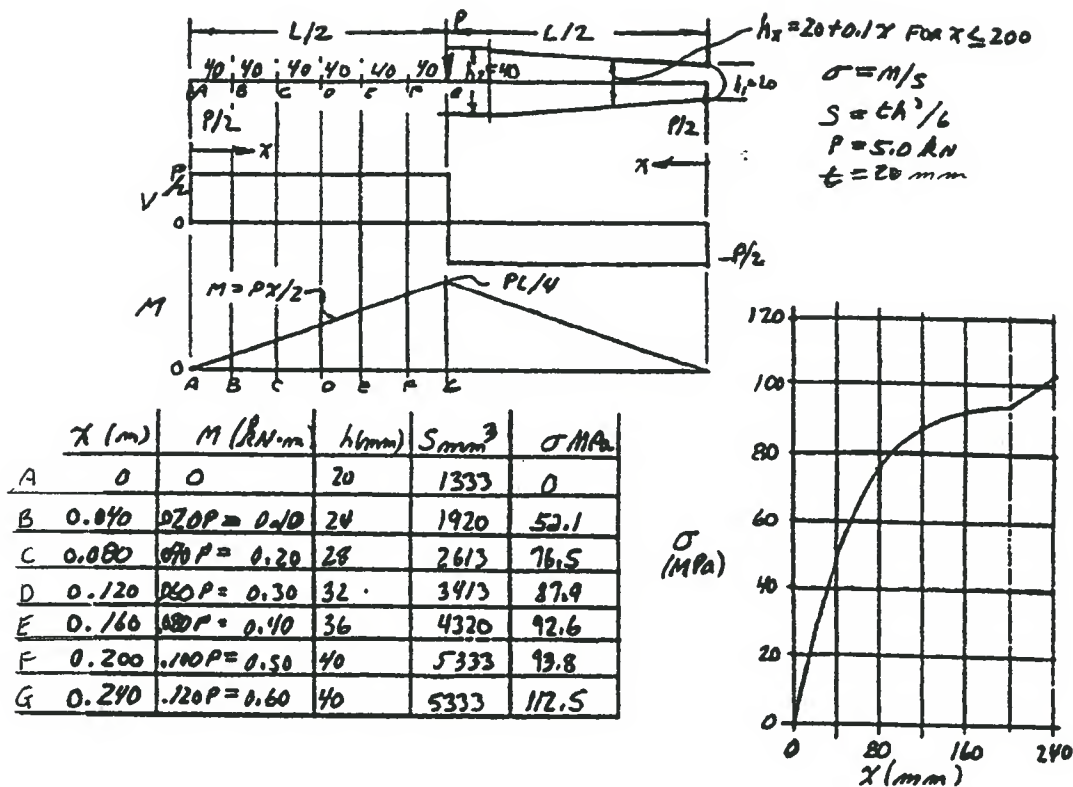 L/2
P
L/2
hx = 20+0.1x FOR x ≤ 200
40 40 40 40 40 40
h2=40
h1=20
σ = M/S
A B C D E F G
P/2
P/2
S = th²/6
x
x
P = 5.0 kN
t = 20 mm
V
P/2
0
-P/2
M
M = PX/2
PL/4
0
A B C D E F G
x (m) M (kN·m) h(mm) S mm³ σ MPa
A 0 0 20 1333 0
B 0.040 .020P = 0.10 24 1920 52.1
C 0.080 .040P = 0.20 28 2613 76.5
D 0.120 .060P = 0.30 32 3413 87.9
E 0.160 .080P = 0.40 36 4320 92.6
F 0.200 .100P = 0.50 40 5333 93.8
G 0.240 .120P = 0.60 40 5333 112.5
120
100
80
60
40
20
0
σ
(MPa)
0 80 160 240
x (mm)